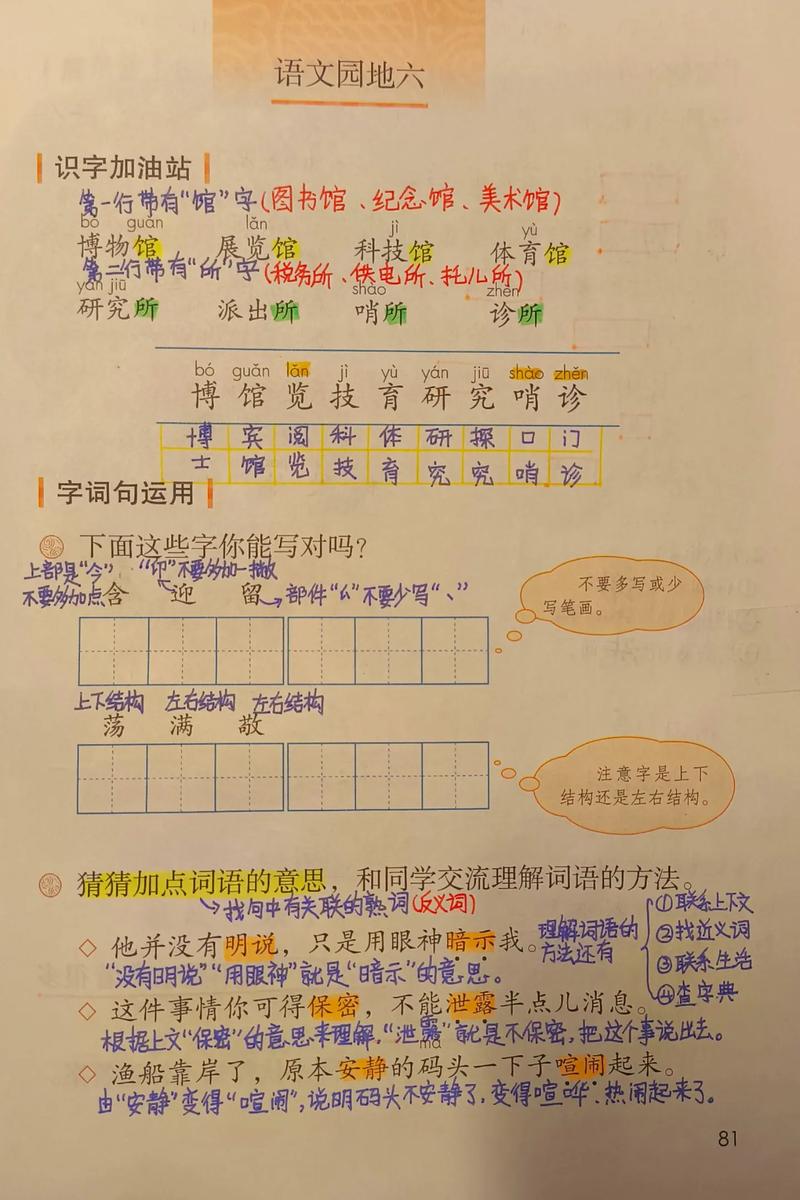 语文园地六
识字加油站
第一行带有“馆”字(图书馆、纪念馆、美术馆)
bó guǎn lǎn jì yù
博物馆 展览馆 科技馆 体育馆
第二行带有“所”字(税务所、供电所、托儿所)
yán jiū shào zhěn
研究所 派出所 哨所 诊所
bó guǎn lǎn jì yù yán jiū shào zhěn
博 馆 览 技 育 研 究 哨 诊
博 宾 阅 科 体 研 探 口 门
士 馆 览 技 育 究 究 哨 诊
字词句运用
下面这些字你能写对吗?
上部是“今”, “迎”不要多加一撇
不要多加点 含 迎 留 部件“厶”不要少写“、”
不要多写或少
写笔画。
上下结构 左右结构 左右结构
荡 满 敬
注意字是上下
结构还是左右结构。
猜猜加点词语的意思,和同学交流理解词语的方法。
找句中有关联的熟词(反义词)
理解词语的
方法还有
①联系上下文
②找近义词
③联系生活
④查字典
他并没有明说,只是用眼神暗示我。
“没有明说”“用眼神”就是“暗示”的意思。
这件事情你可得保密,不能泄露半点儿消息。
根据上文“保密”的意思来理解,“泄露”就是不保密,把这个事说出去。
mǎ
渔船靠岸了,原本安静的码头一下子喧闹起来。
由“安静”变得“喧闹”,说明码头不安静了,变得喧哗、热闹起来了。
81